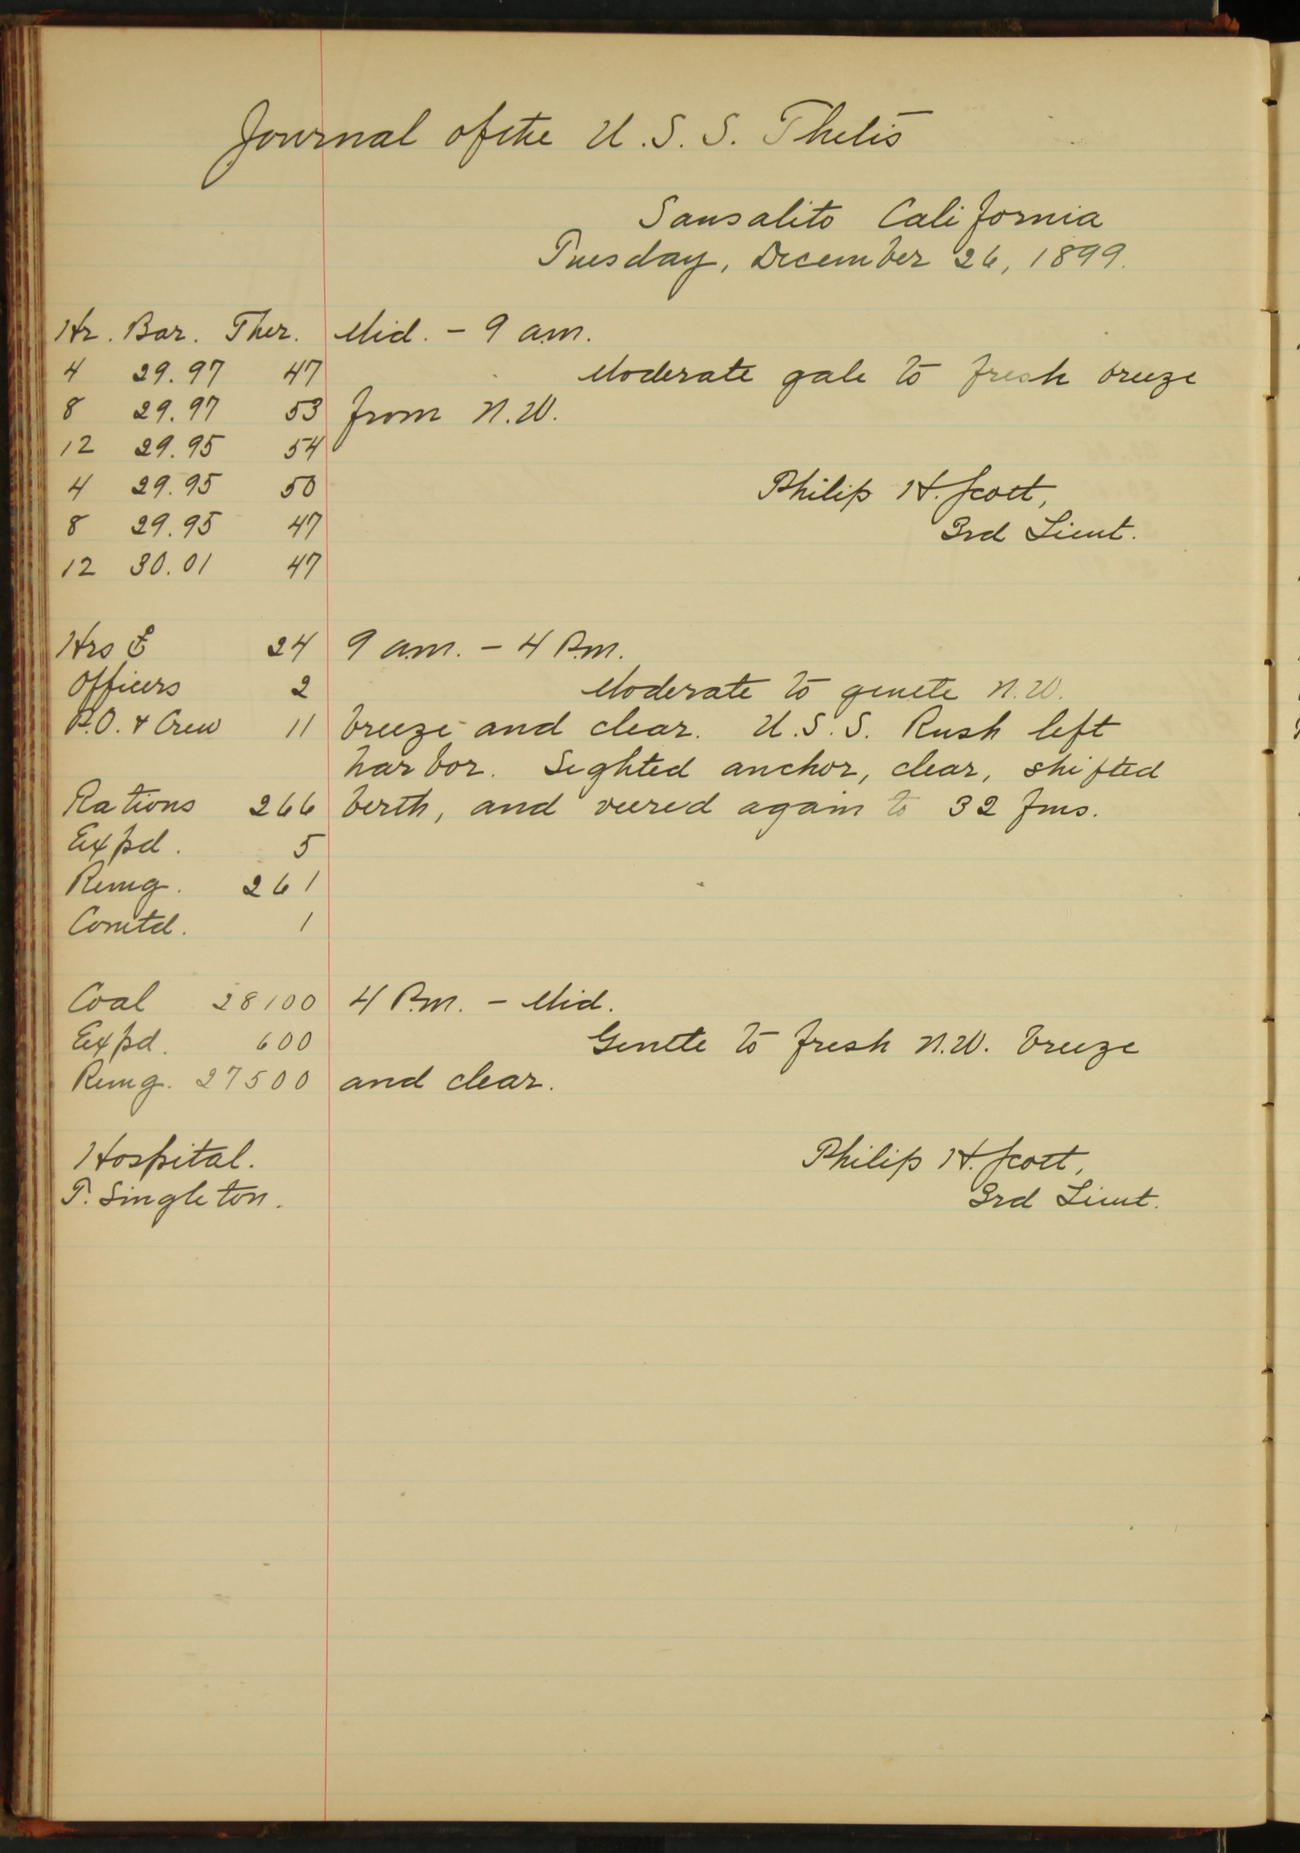 Journal of the U.S.S. Thetis
Sausalito California
Tuesday, December 26, 1899.
Hr. Bar. Ther. Mid. - 9 a.m.
4 29.97 47 Moderate gale to fresh breeze
8 29.97 53 from N.W.
12 29.95 54
4 29.95 50 Philip H. Scott,
8 29.95 47 3rd Lieut.
12 30.01 47
Hrs 24 9 a.m. - 4 P.m.
Officers 2 Moderate to gentle N.W.
P.O. & Crew 11 breeze and clear. U.S.S. Rush left
harbor. Sighted anchor, clear, shifted
Rations 266 berth, and veered again to 32 fms.
Expd. 5
Remg. 261
Comtd. 1
Coal 28100 4 P.m. - Mid.
Expd. 600 Gentle to fresh N.W. breeze
Remg. 27500 and clear.
Hospital. Philip H. Scott,
T. Singleton. 3rd Lieut.